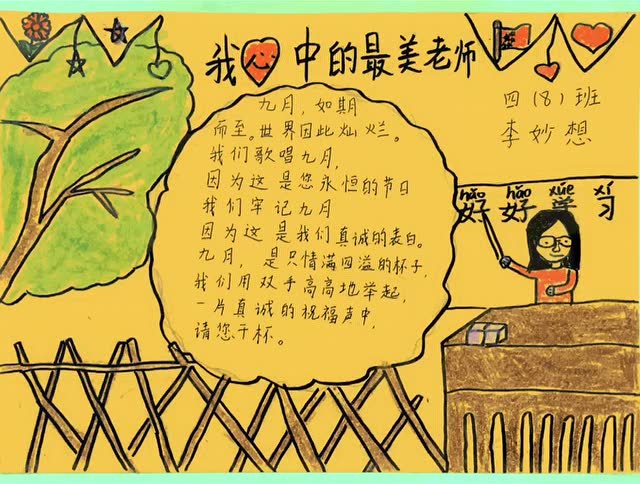 我心中的最美老师
四(8)班
李妙想
九月,如期
而至。世界因此灿烂。
我们歌唱九月,
因为这是您永恒的节日
我们牢记九月
因为这是我们真诚的表白。
九月,是只情满四溢的杯子,
我们用双手高高地举起,
一片真诚的祝福声中,
请您干杯。
hǎo hǎo xúe xí
好好学习